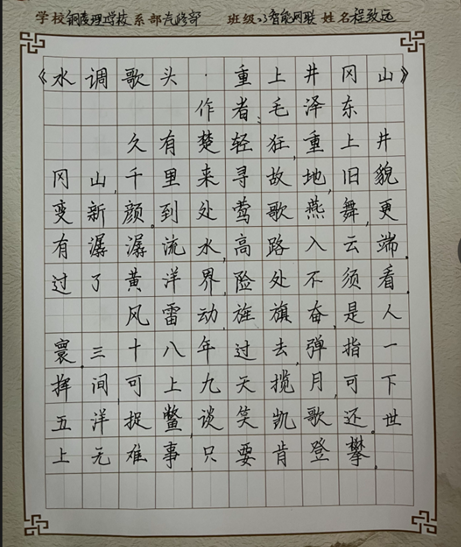 学校铜陵理工学校系部汽修部 班级23智能网联姓名程致远
《水调歌头·重上井冈山》
作者:毛泽东
久有楚轻狂,重上井
冈山,千里来寻故地,旧貌
变新颜。到处莺歌燕舞,更
有潺潺流水,高路入云端。
过了黄洋界,险处不须看。
风雷动,旌旗奋,是人
寰。三十八年过去,弹指一
挥间,可上九天揽月,可下
五洋捉鳖,谈笑凯歌还。世
上无难事,只要肯登攀。